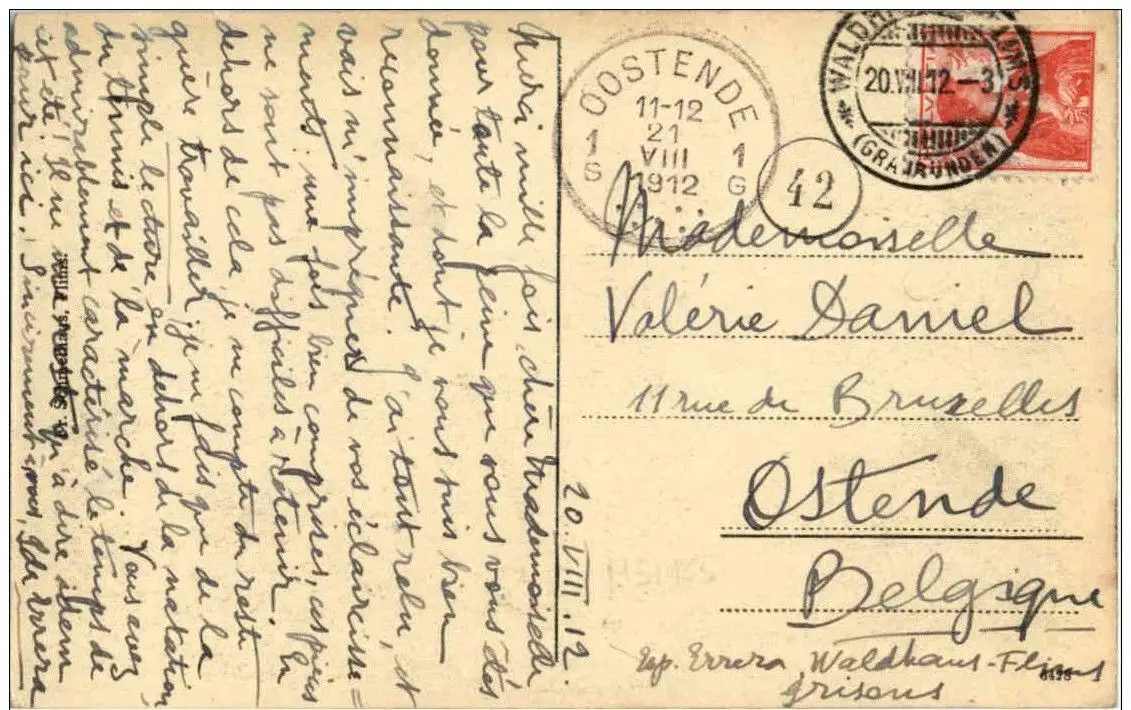 Merci mille fois, chère Mademoiselle
pour toute la peine que vous vous êtes
donnée, et dont je vous suis bien
reconnaissante. J'ai tout relu, et
vais m'imprégner de vos éclaircisse=
ments: une fois bien comprises, ces pièces
ne sont pas difficiles à retenir. En
dehors de cela je me compte du reste
guère travailler, je ne fais que de la
simple lecture en dehors de la natation,
du tennis et de la marche. Vous avez
admirablement caractérisé le temps de
cet été! Il ne qu'à dire idem
pour ici. Sincèrement à vous, Errera
20.VIII.12.
OOSTENDE
11-12
21
VIII
1912
1 1
S G
42
WALDHAUS-FLIMS
20.VIII.12.-3
(GRAUBÜNDEN)
Mademoiselle
Valérie Daniel
11 rue de Bruxelles
Ostende
Belgique
Exp. Errera, Waldhaus-Flims
Grisons